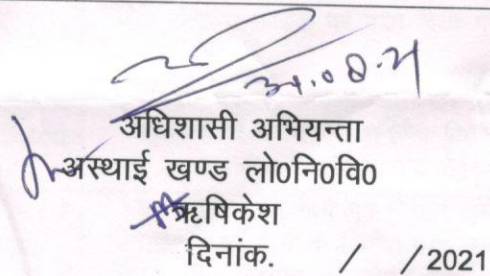 अधिशासी अभियन्ता
अस्थाई खण्ड लो0नि0वि0
ऋषिकेश
दिनांक. / / 2021